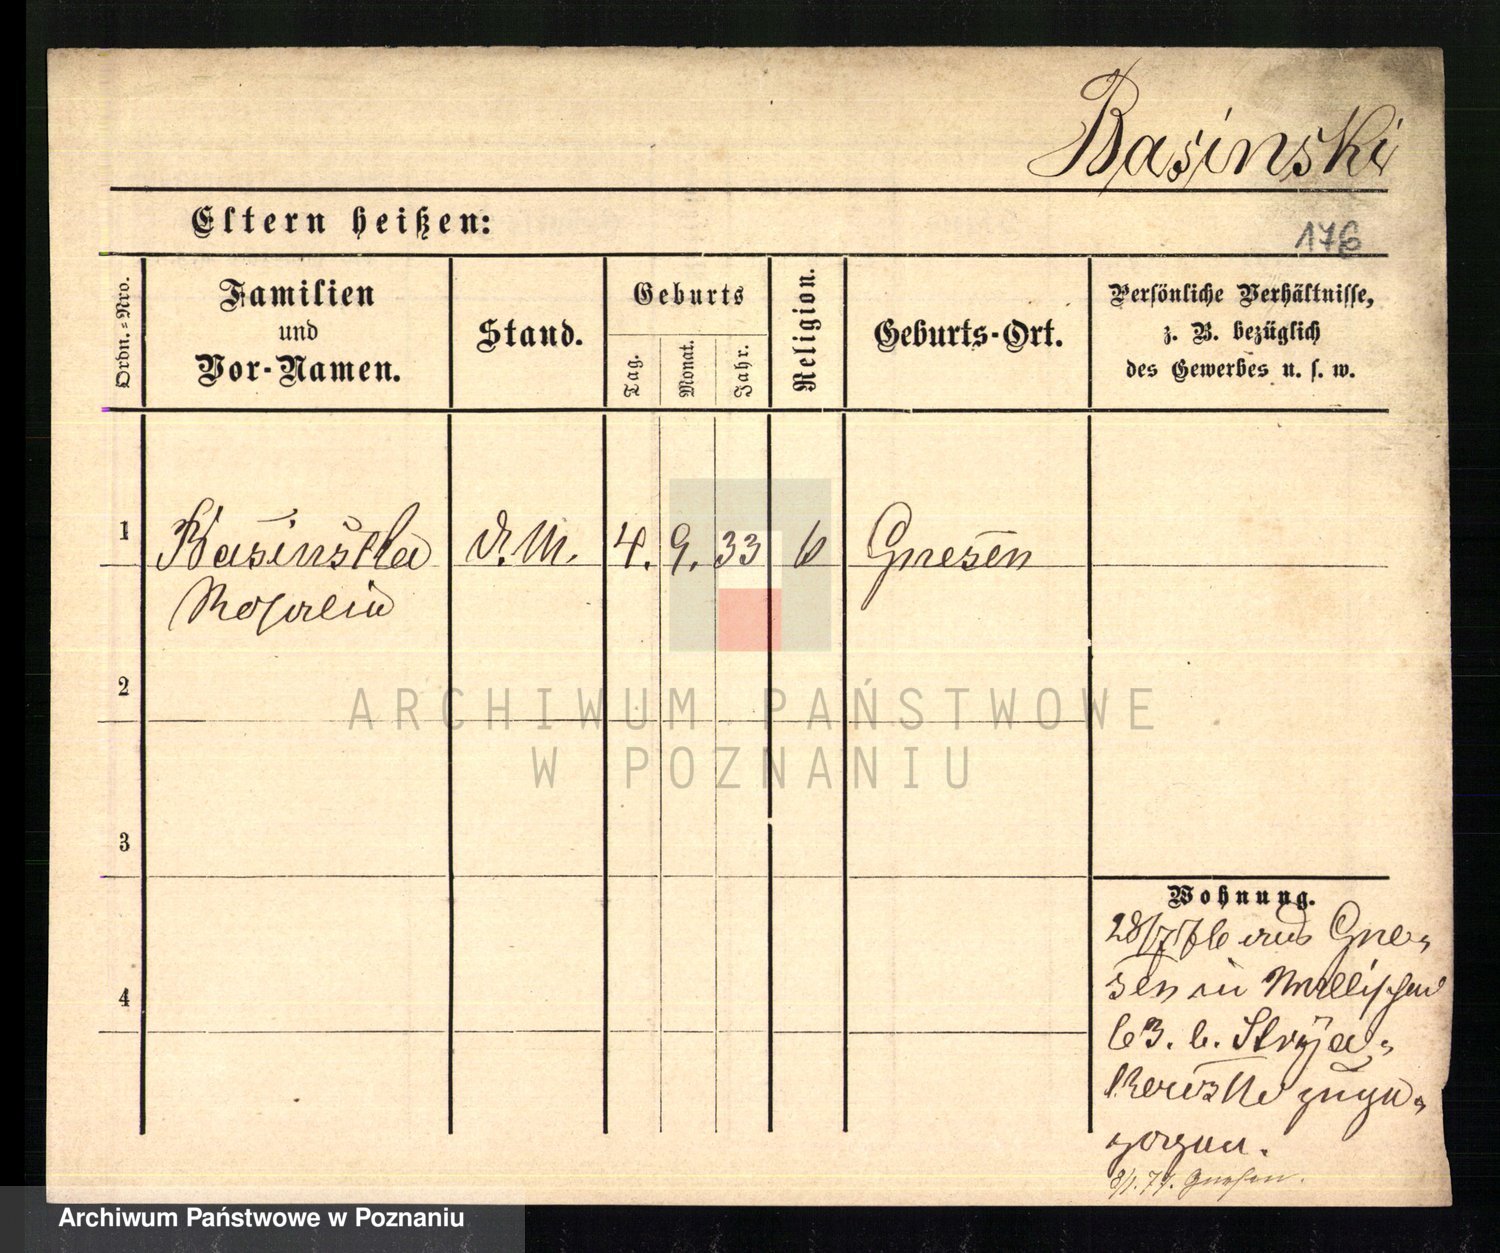 Basinski
Eltern heißen:
176
Ordn.-Nro.
Familien
und
Vor-Namen.
Stand.
Geburts
Tag.
Monat.
Jahr.
Religion.
Geburts-Ort.
Persönliche Verhältnisse,
z. B. bezüglich
des Gewerbes u. s. w.
1
Basinska
d. M.
4.
9.
33
Gnesen
Rosalia
2
ARCHIWUM PAŃSTWOWE
W POZNANIU
3
Wohnung.
28/7 76 aus Gne-
sen in
63. b.
zuge-
4
zogen.
Gnesen.
Archiwum Państwowe w Poznaniu